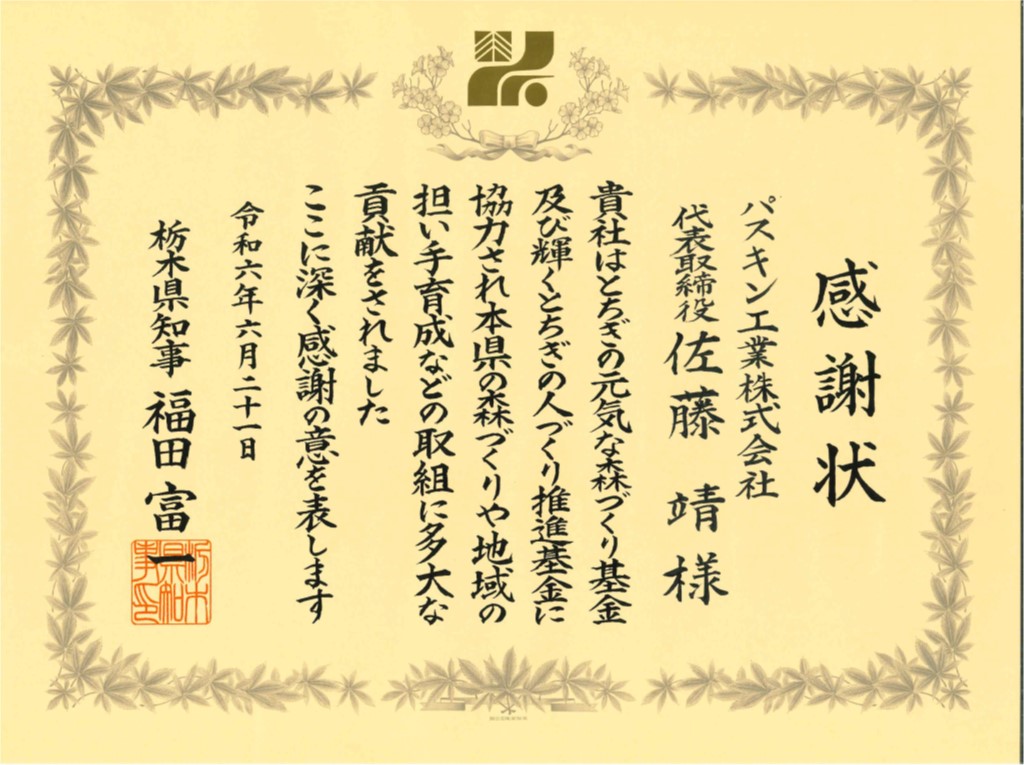 感謝状
パスキン工業株式会社
代表取締役 佐藤 靖 様
貴社はとちぎの元気な森づくり基金
及び輝くとちぎの人づくり推進基金に
協力され本県の森づくりや地域の
担い手育成などの取組に多大な
貢献をされました
ここに深く感謝の意を表します
令和六年六月二十一日
栃木県知事 福田 富一
栃木県知事印